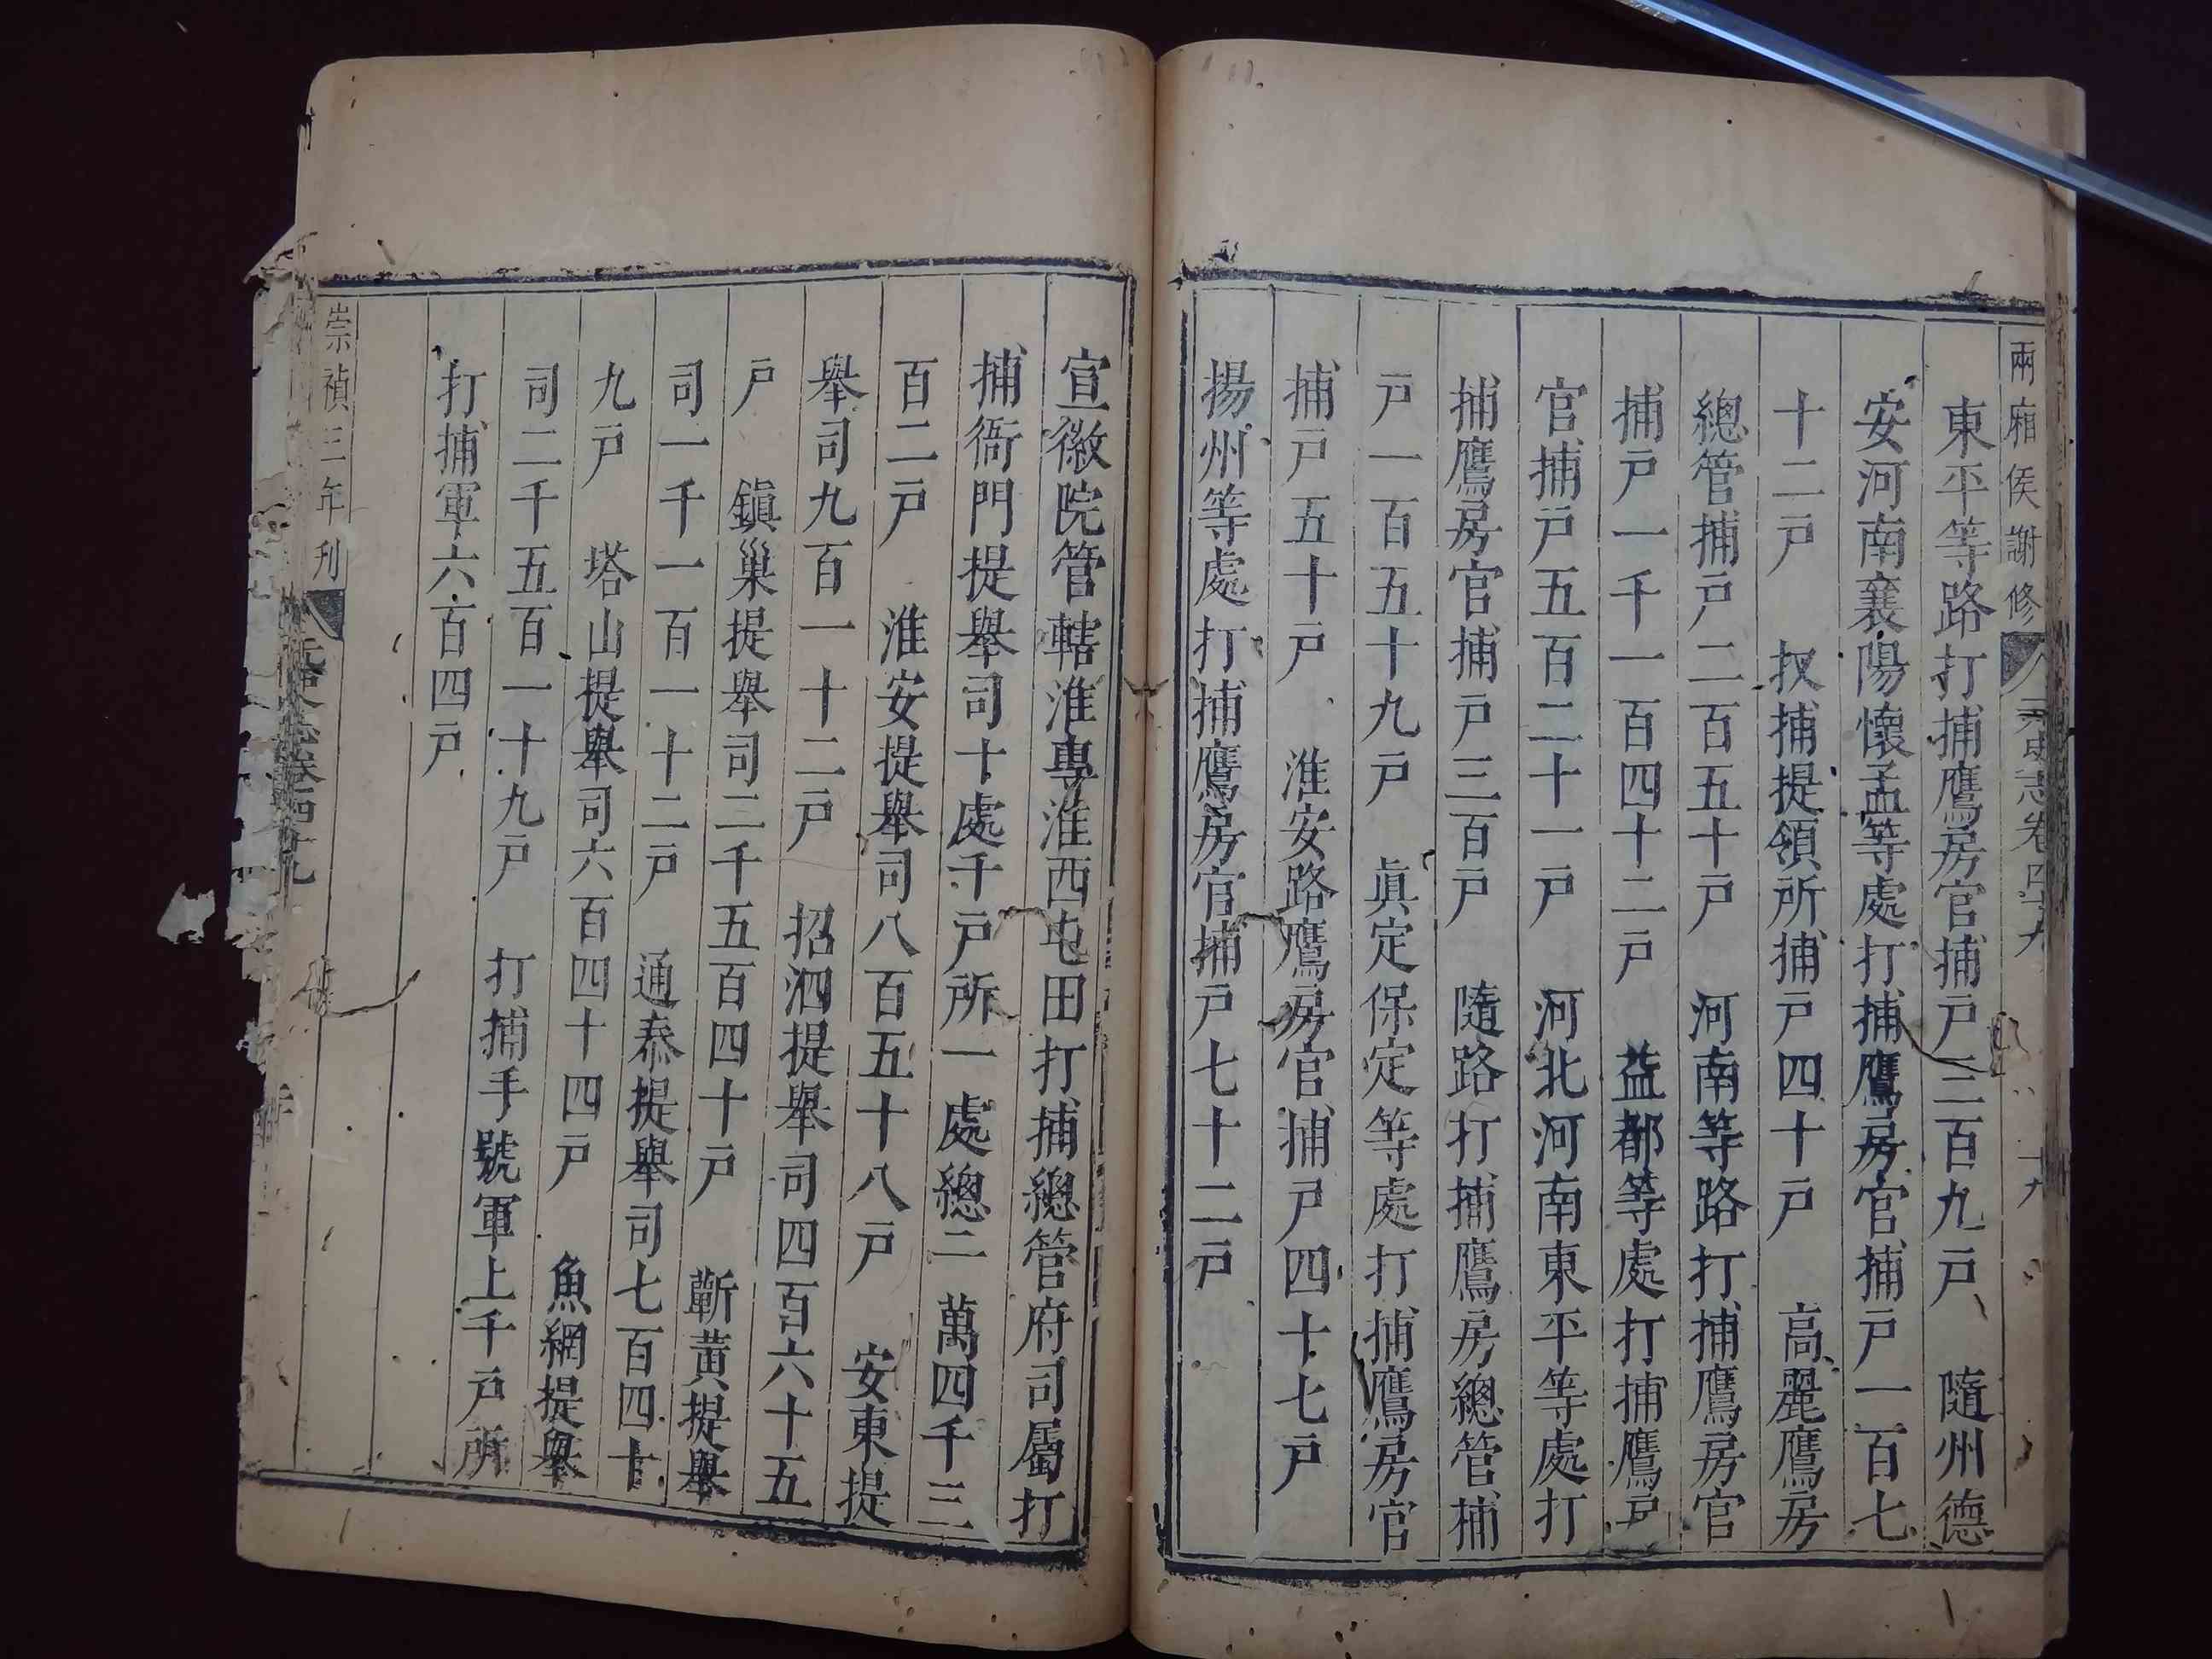 兩廂侯謝修
元史志卷四十九
十九
東平等路打捕鷹房官捕戶三百九戶　隨州德
安河南襄陽懷孟等處打捕鷹房官捕戶一百七
十二戶　扠捕提領所捕戶四十戶　高麗鷹房
總管捕戶二百五十戶　河南等路打捕鷹房官
捕戶一千一百四十二戶　益都等處打捕鷹房
官捕戶五百二十一戶　河北河南東平等處打
捕鷹房官捕戶三百戶　隨路打捕鷹房總管捕
戶一百五十九戶　眞定保定等處打捕鷹房官
捕戶五十戶　淮安路鷹房官捕戶四十七戶
揚州等處打捕鷹房官捕戶七十二戶
宣徽院管轄淮專淮西屯田打捕總管府司屬打
捕衙門提舉司十處千戶所一處總二萬四千三
百二戶　淮安提舉司八百五十八戶　安東提
舉司九百一十二戶　招泗提舉司四百六十五
戶　鎭巢提舉司二千五百四十戶　蘄黃提舉
司一千一百一十二戶　通泰提舉司七百四十
九戶　塔山提舉司六百四十四戶　魚網提舉
司二千五百一十九戶　打捕手號軍上千戶所
打捕軍六百四戶
崇禎三年刊
元史志卷四十九